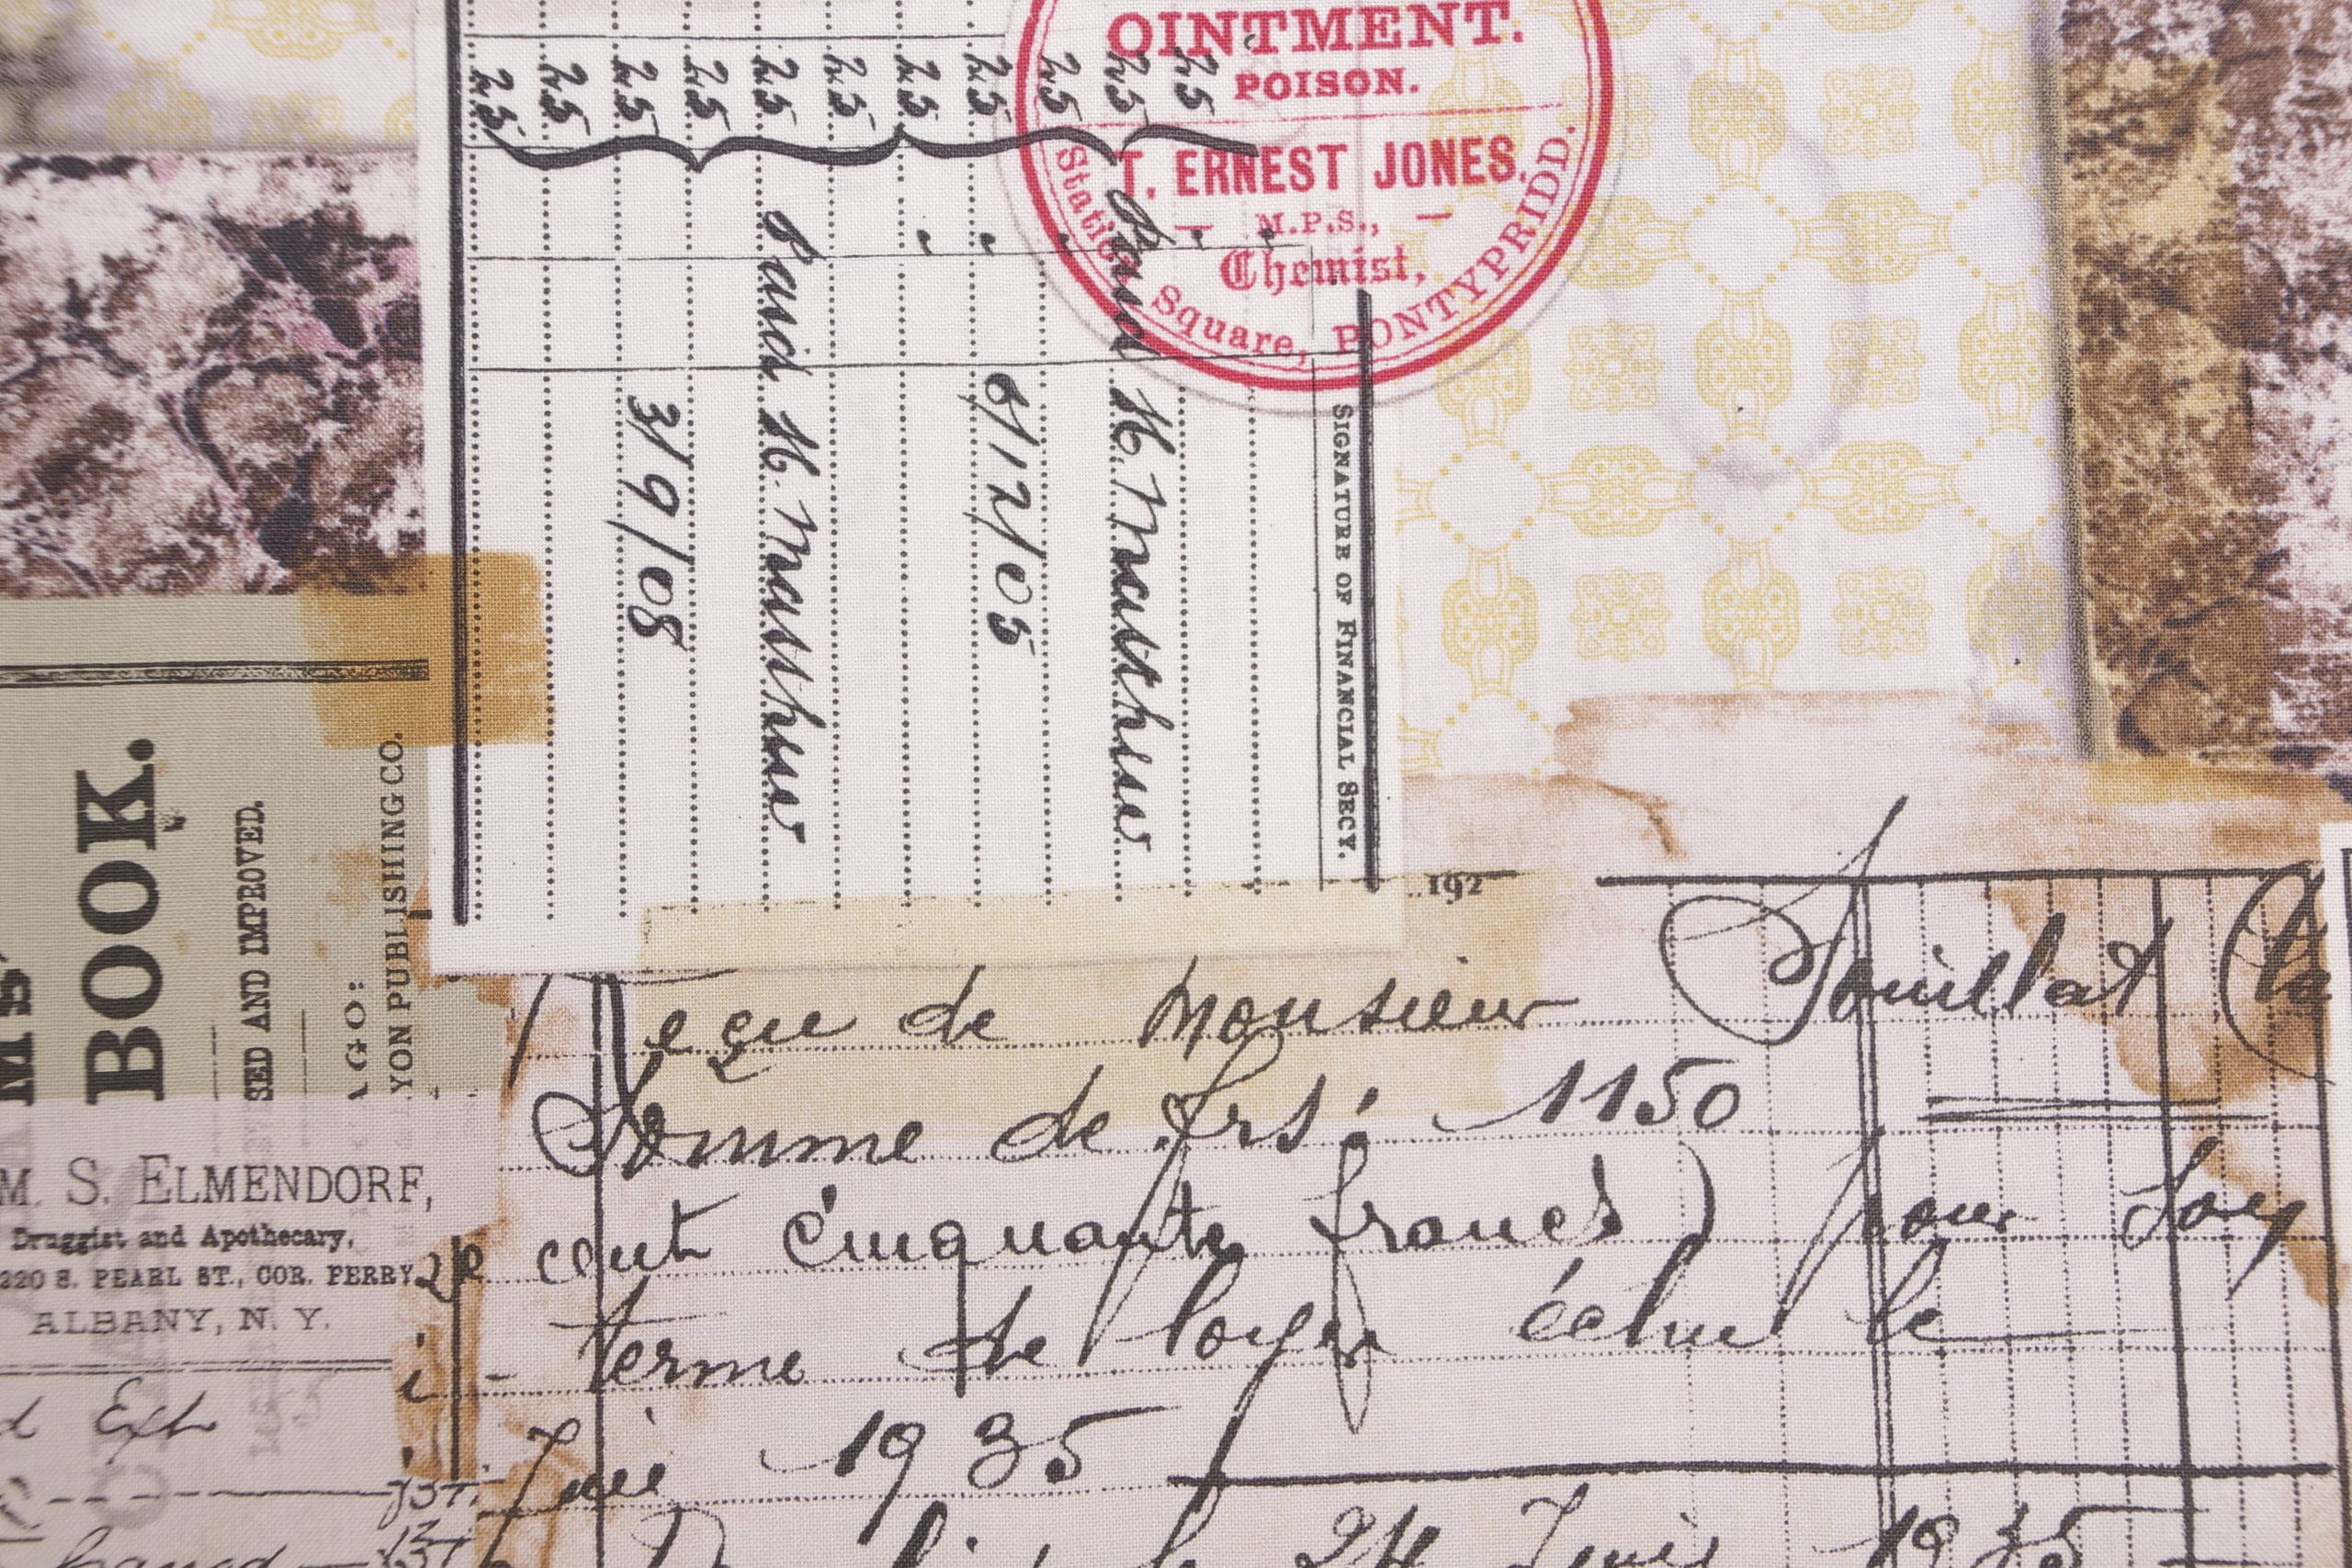 OINTMENT.
POISON.
T. ERNEST JONES.
M.P.S.,
Chemist,
Station Square, PONTYPRIDD.
SIGNATURE OF FINANCIAL SECY.
25
25
25
25
25
25
25
25
25
25
25
Paid H.
6/12/05
Paid H.
3/9/08
BOOK.
SED AND IMPROVED.
AGO:
YON PUBLISHING CO.
M. S. ELMENDORF,
Druggist and Apothecary,
220 S. PEARL ST., COR. FERRY
ALBANY, N. Y.
Ext
192
eçu de Monsieur Souillat (la
Somme de frs: 1150
cent cinquante francs) pour Son
terme de loyer échue le
1935
le 24 Juin 1935